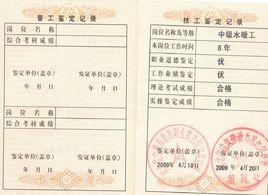 普工鉴定记录
岗位名称
综合考核成绩
鉴定单位(盖章)
发证单位(盖章)
年 月 日
年 月 日
岗位名称
综合考核成绩
鉴定单位(盖章)
发证单位(盖章)
年 月 日
年 月 日
技工鉴定记录
岗位名称及等级 中级水暖工
本岗位工作时间 8年
职业道德鉴定 优
工作业绩鉴定 优
理论考试成绩 合格
实操鉴定成绩 合格
鉴定单位(盖章)
发证单位(盖章)
2009年 4月10日
2009年 4月20日